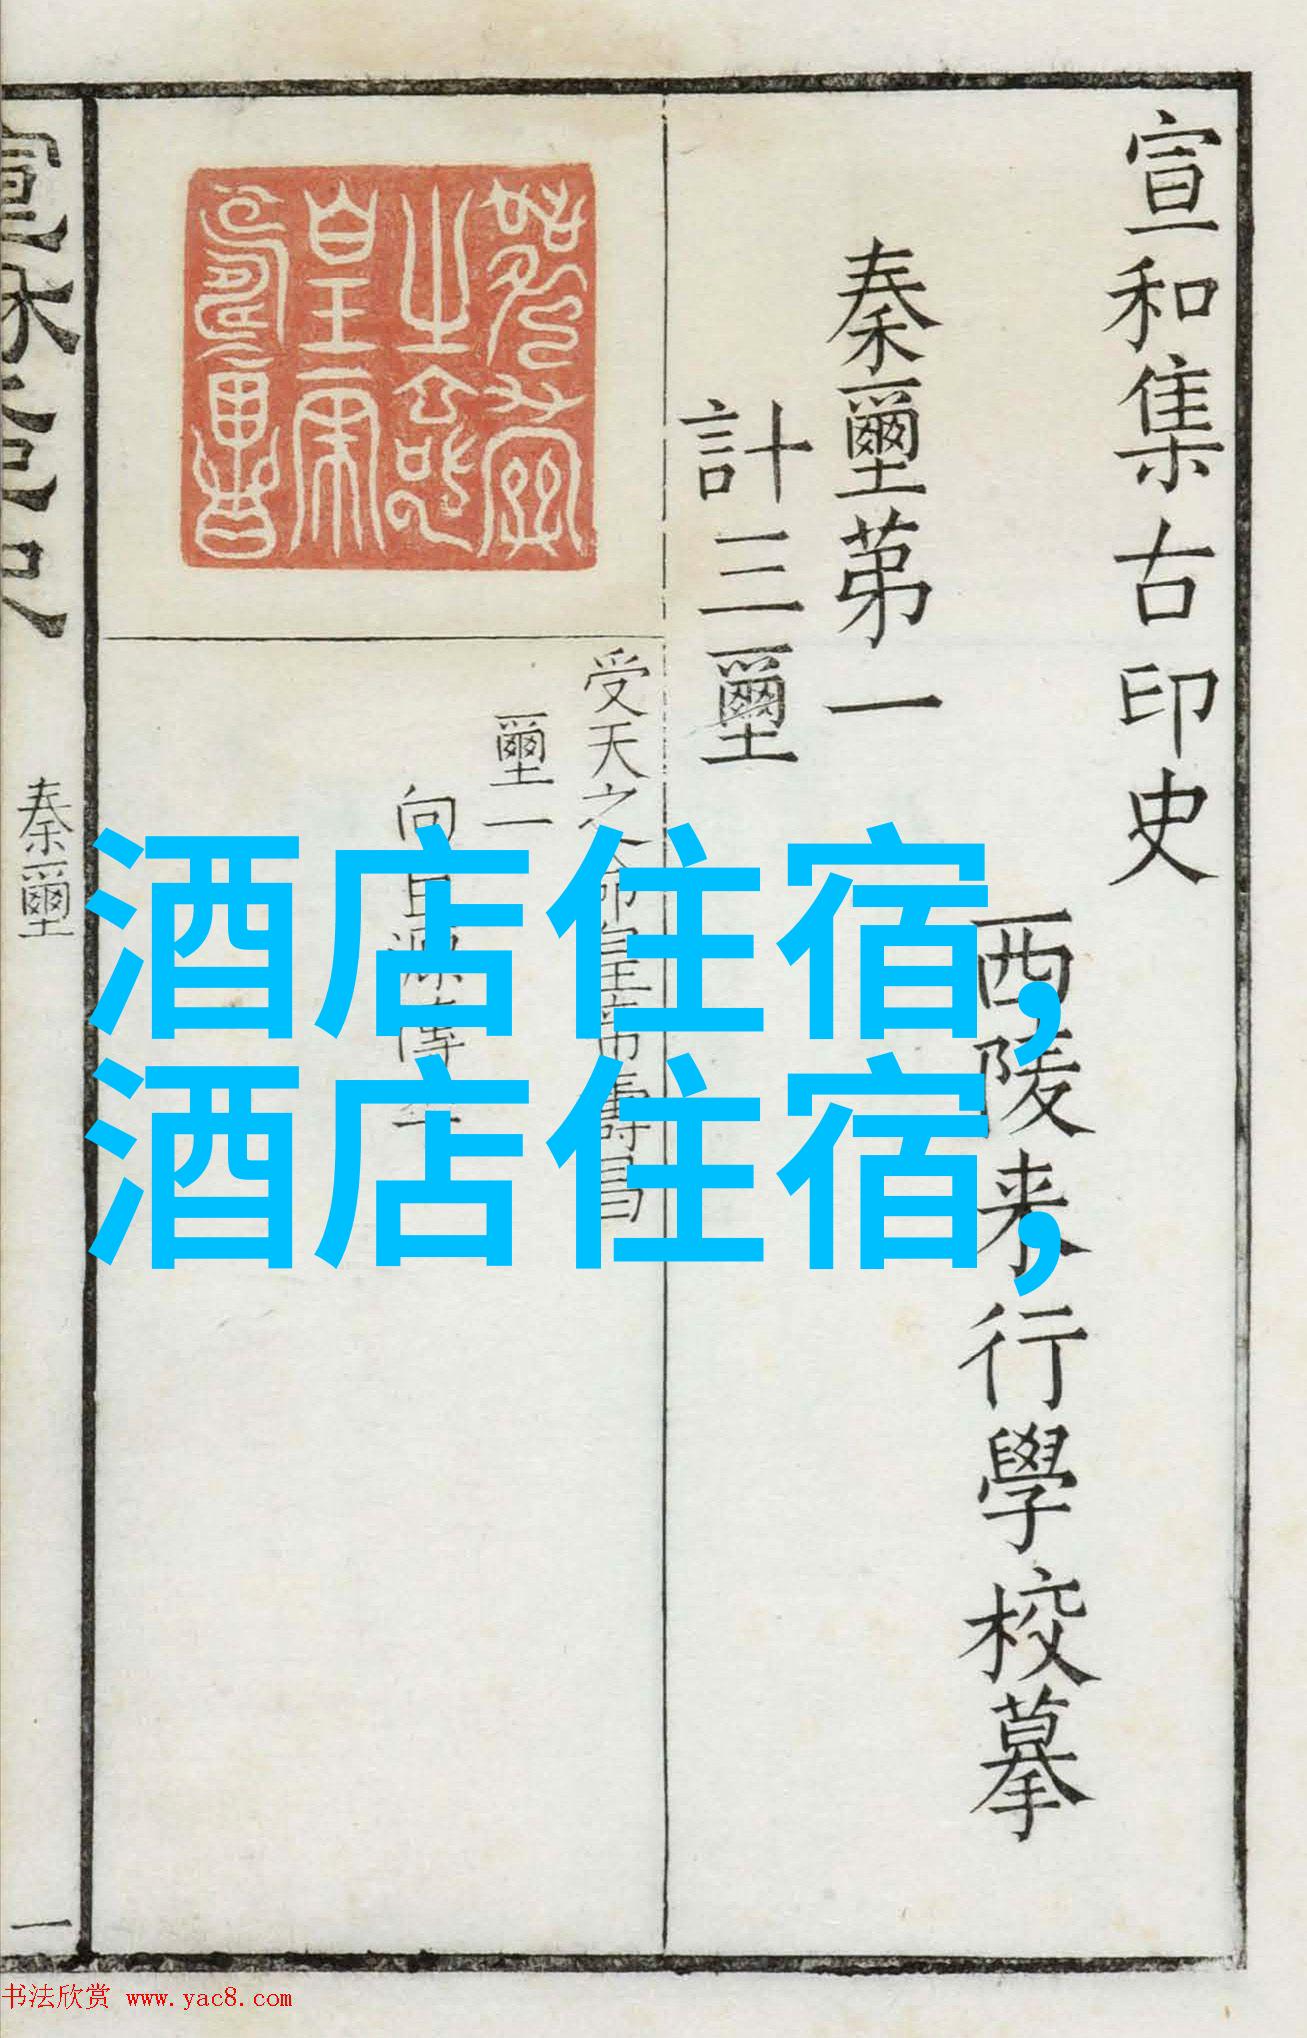 宣和集古印史
西陵来行學校摹
秦璽苐一
計三璽
受天之命皇帝壽昌
璽一
向巨源傳本
秦璽
一
酒店住宿,
酒店住宿,
书法欣赏 www.yac8.com